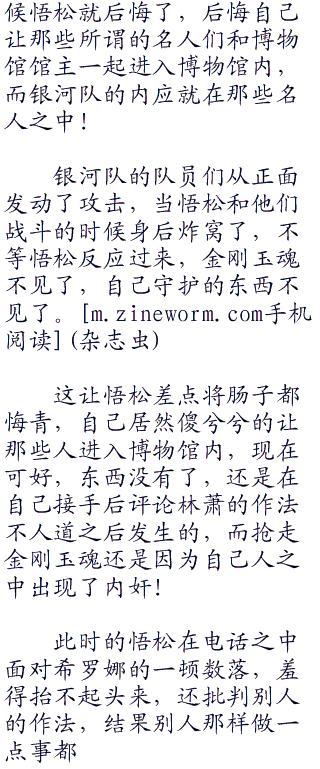 候悟松就后悔了，后悔自己
让那些所谓的名人们和博物
馆馆主一起进入博物馆内，
而银河队的内应就在那些名
人之中！
银河队的队员们从正面
发动了攻击，当悟松和他们
战斗的时候身后炸窝了，不
等悟松反应过来，金刚玉魂
不见了，自己守护的东西不
见了。[m.zineworm.com手机
阅读](杂志虫)
这让悟松差点将肠子都
悔青，自己居然傻兮兮的让
那些人进入博物馆内，现在
可好，东西没有了，还是在
自己接手后评论林萧的作法
不人道之后发生的，而抢走
金刚玉魂还是因为自己人之
中出现了内奸！
此时的悟松在电话之中
面对希罗娜的一顿数落，羞
得抬不起头来，还批判别人
的作法，结果别人那样做一
点事都